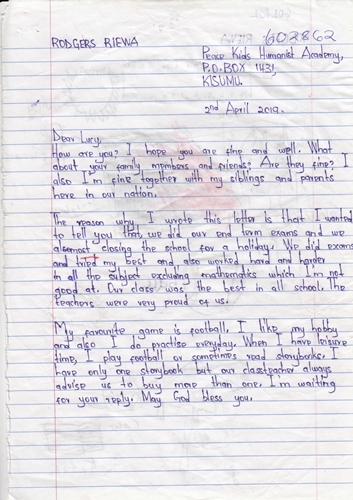 602862
RODGERS RIEWA
Peace Kids Humanist Academy,
P.O.BOX 1431,
KISUMU.
2nd April 2019.
Dear Lucy,
How are you? I hope you are fine and well. What
about your family members and friends? Are they fine? I
also I'm fine together with my siblings and parents
here in our nation.
The reason why I wrote this letter is that I wanted
to tell you that we did our end term exams and we
almost closing the school for a holiday. We did exams
and tried my best and also worked hard and harder
in all the subject excluding mathematics which I'm not
good at. Our class was the best in all school. The
teachers were very proud of us.
My favourite game is football. I like my hobby
and also I do practise everyday. When I have leisure
time, I play football or sometimes read storybooks. I
have only one storybook but our classteacher always
advise us to buy more than one. I'm waiting
for your reply. May God bless you.